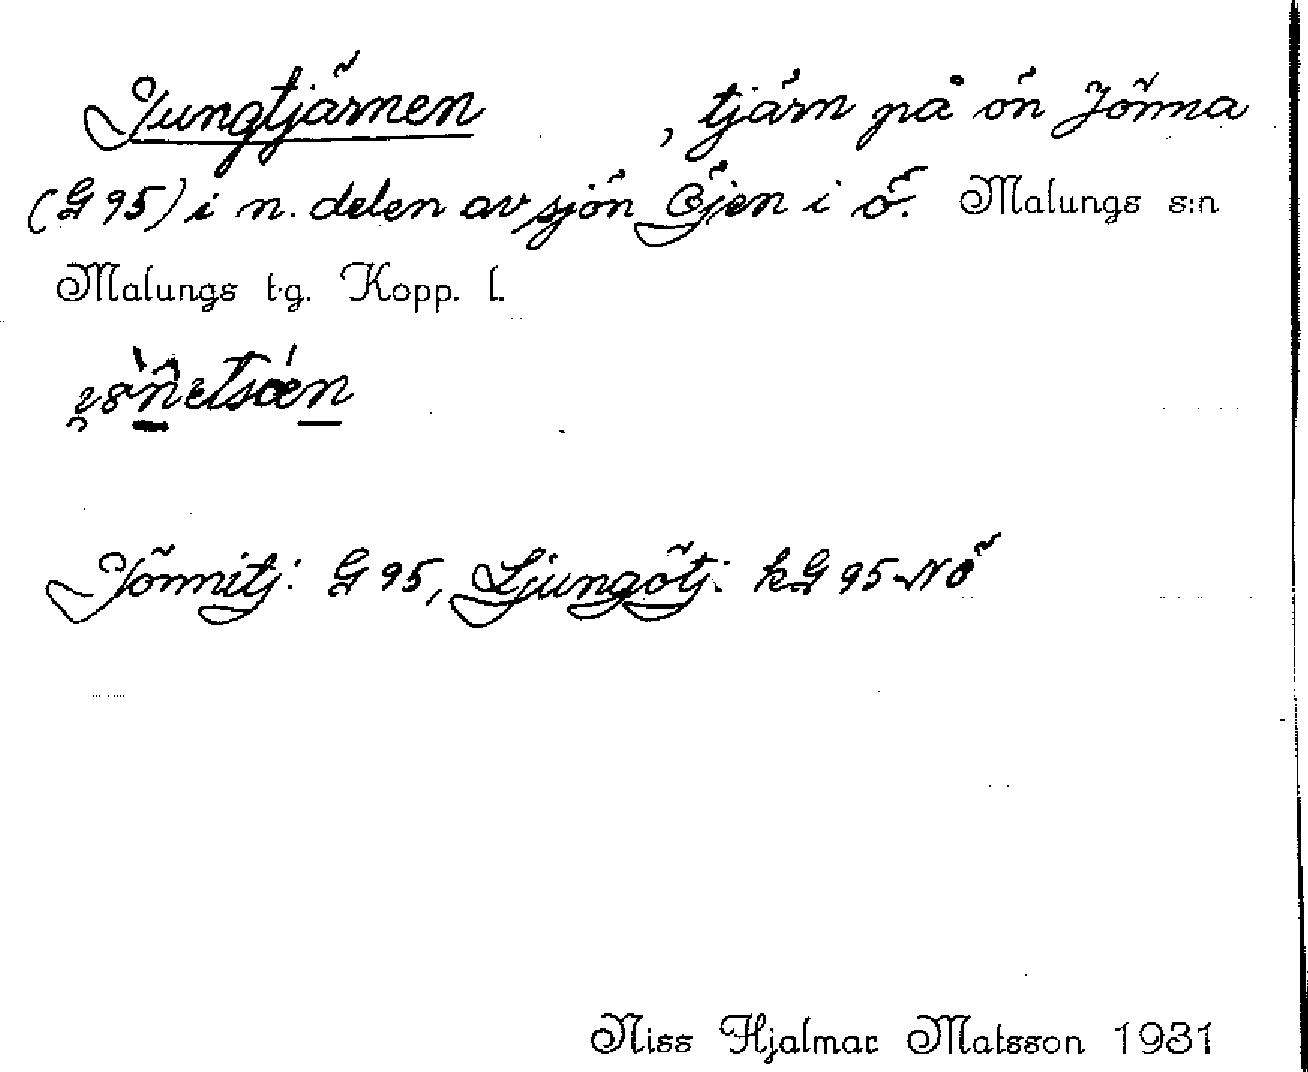 Jungtjärnen , tjärn på ön Jönna
(G 95) i n. delen av sjön Öjen i ö. Malungs s:n
Malungs t.g. Kopp. l.
Jönnitj: G 95, Ljungötj: kG 95 NÖ
Niss Hjalmar Matsson 1931